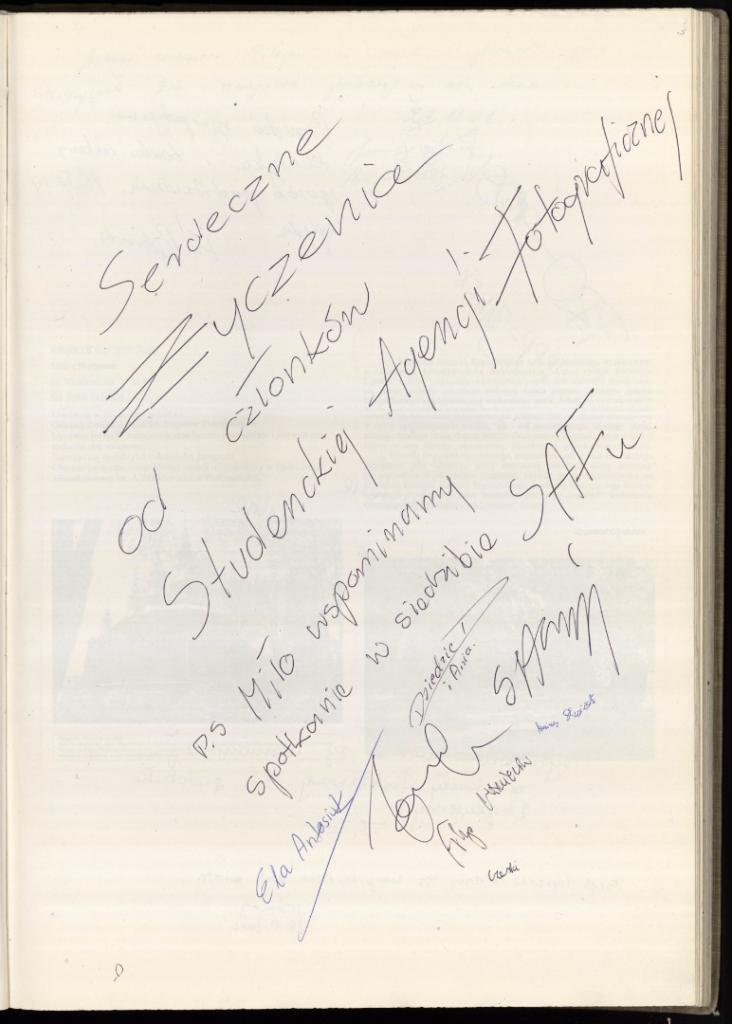 Serdeczne
Życzenia
od członków
Studenckiej Agencji Fotograficznej
P.S Miło wspominamy
spotkanie w siedzibie SAFu
Dziedzic
i Ania.
Ela Antosiuk
Filip